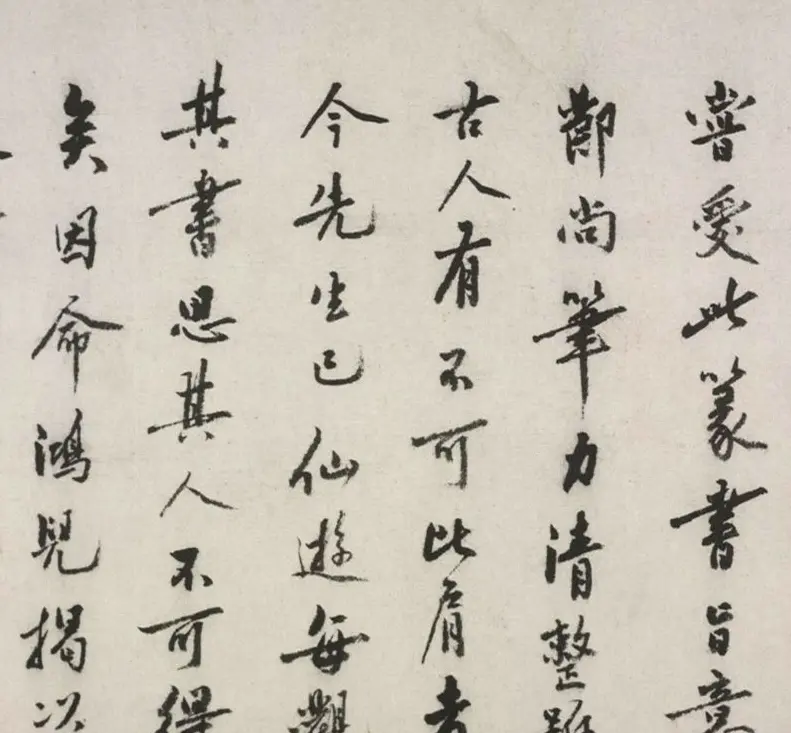 嘗愛此篆書旨意
鄭尚筆力清整雖
古人有不可比肩者
今先生已仙遊每觀
其書思其人不可得
矣因命鴻兒揭次